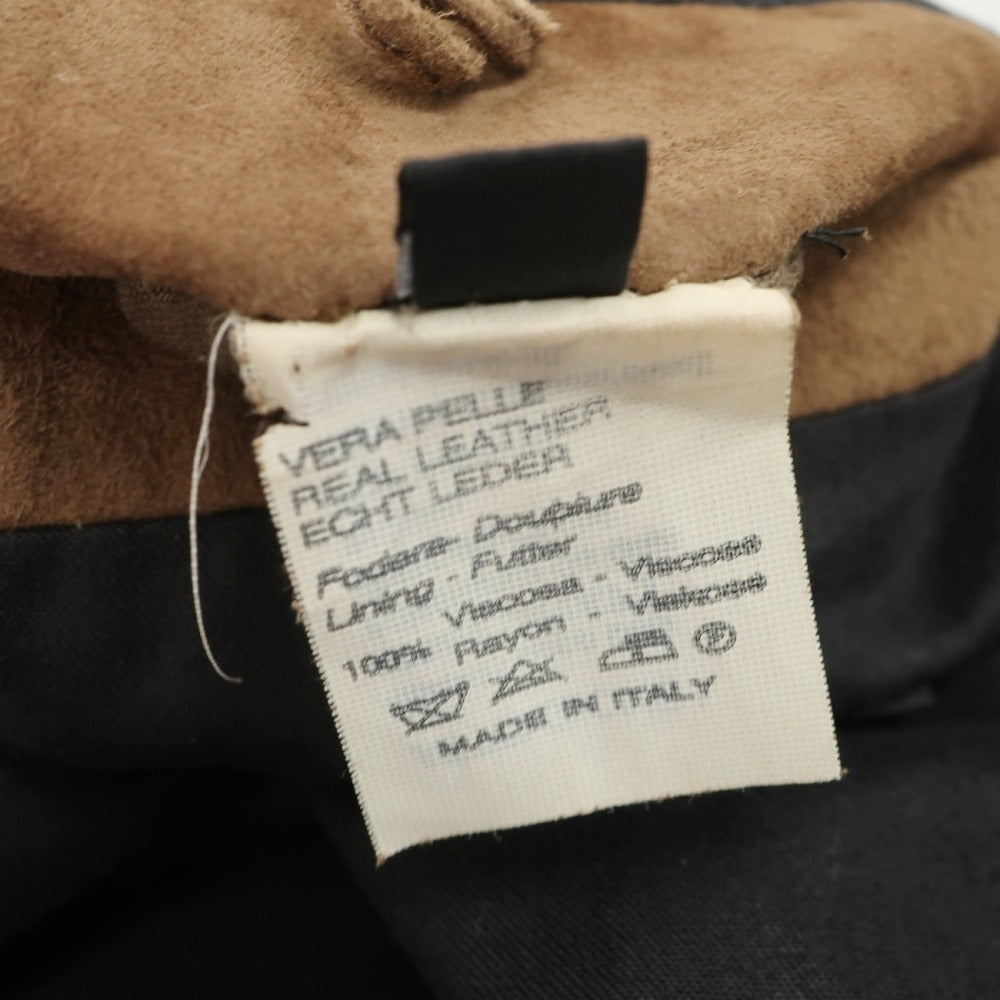 VERA PELLE
REAL LEATHER
ECHT LEDER
Fodera - Doublure
Lining - Futter
100% Viscosa - Viscose
Rayon - Viskose
MADE IN ITALY